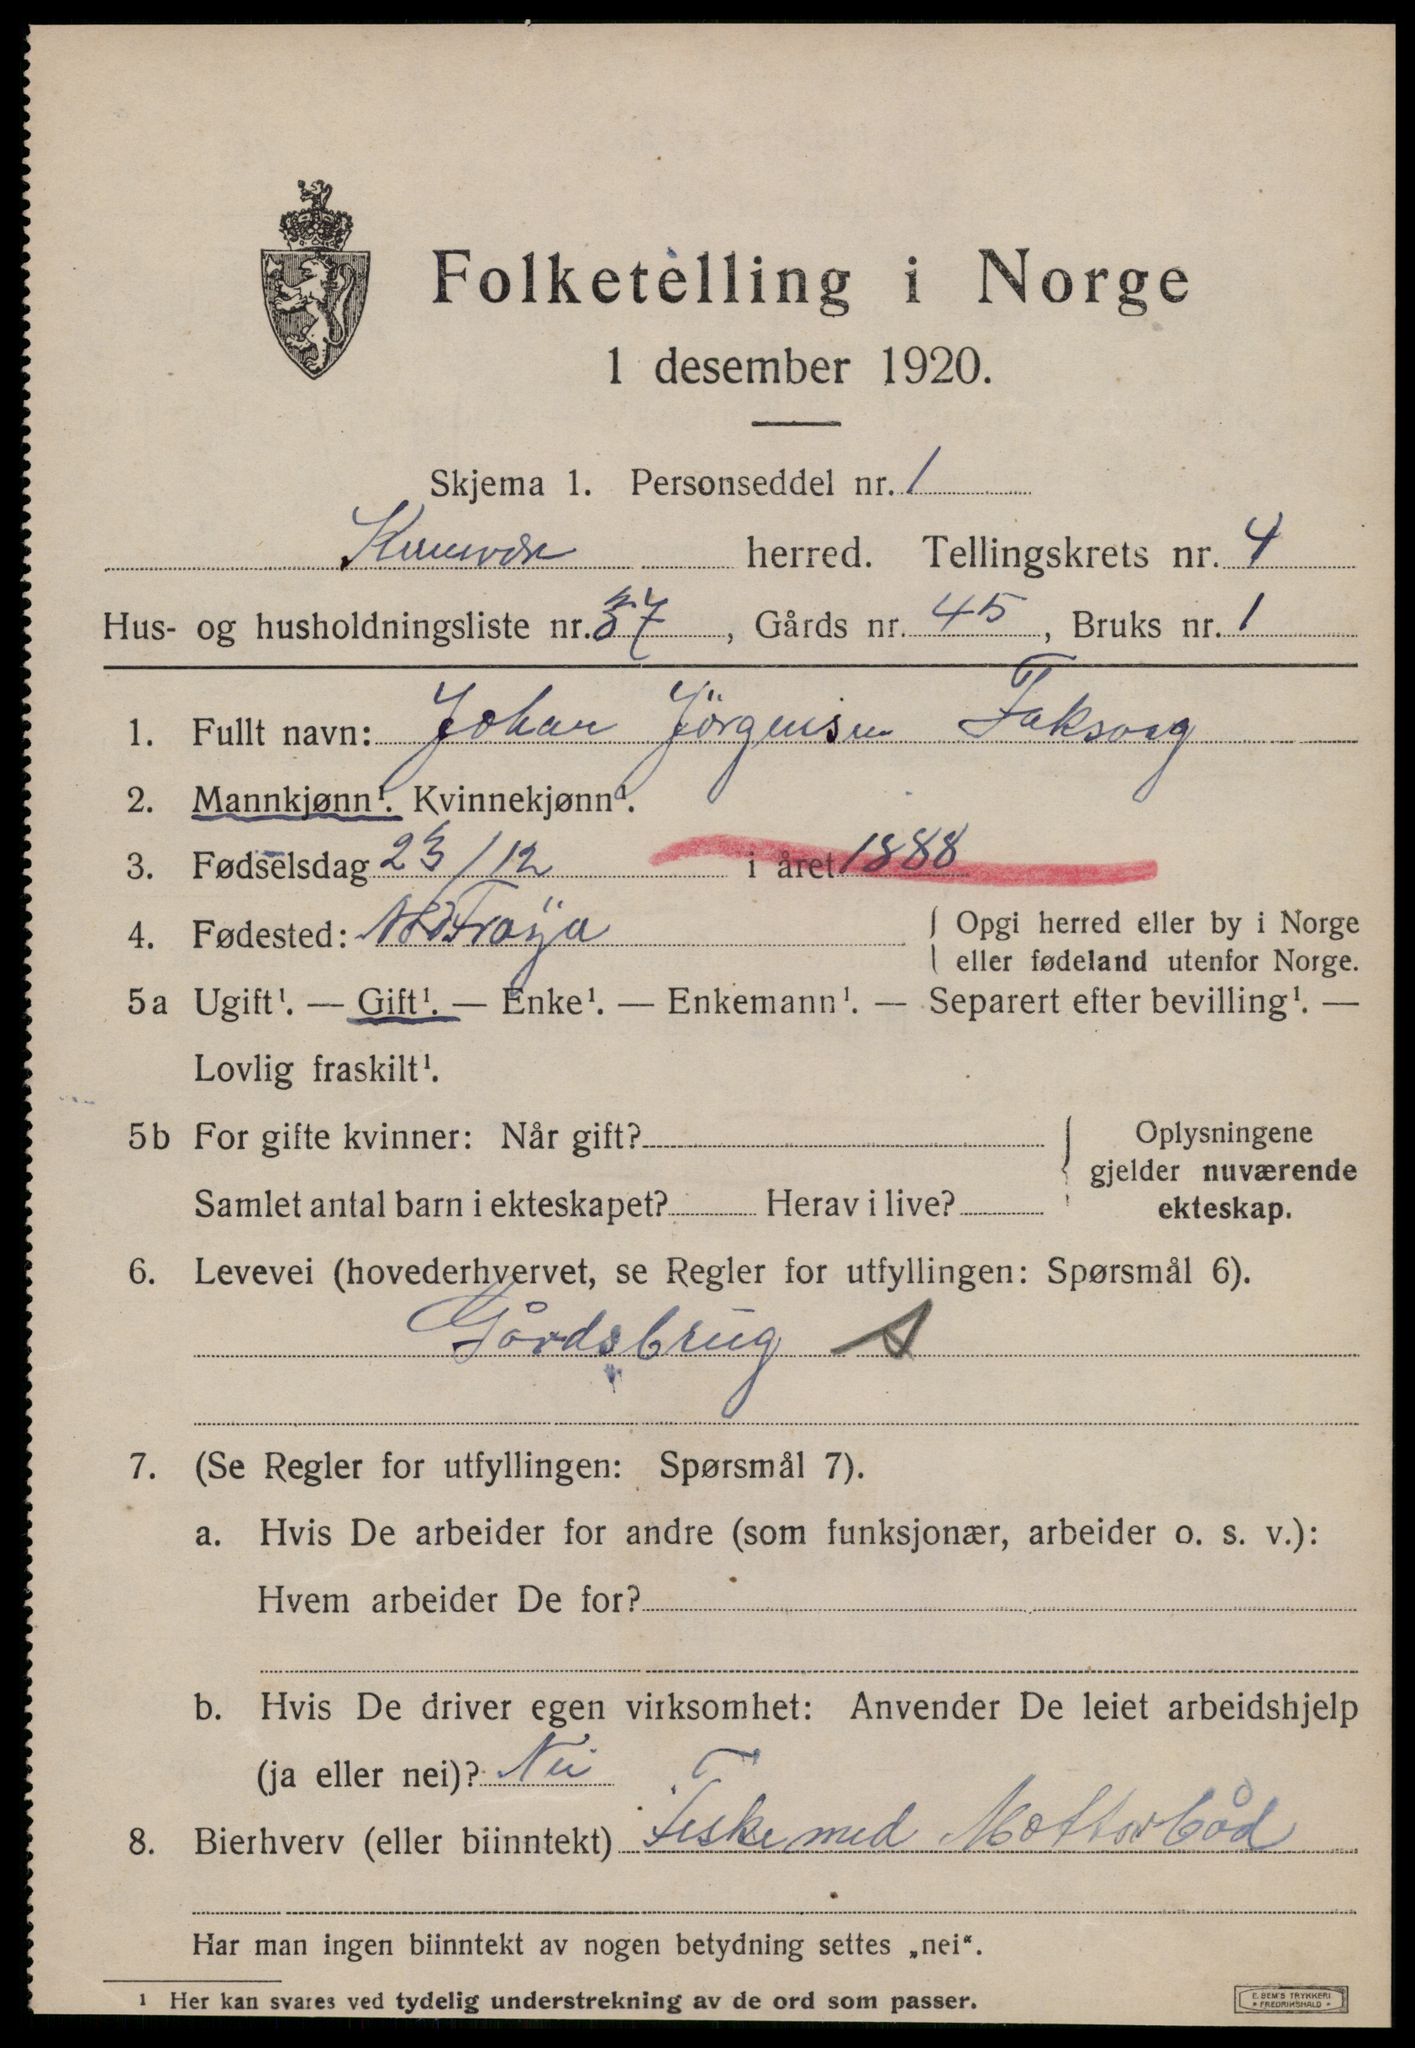 Folketelling i Norge
1 desember 1920.
Skjema 1. Personseddel nr. 1
herred. Tellingskrets nr. 4
Hus- og husholdningsliste nr. 37, Gårds nr. 45, Bruks nr. 1
1. Fullt navn: Johan Jörgensen Faksvag
2. Mannkjønn¹. Kvinnekjønn¹.
3. Fødselsdag 23/12 i året 1888
4. Fødested: N D Fröya { Opgi herred eller by i Norge
eller fødeland utenfor Norge.
5a Ugift¹. — Gift¹. — Enke¹. — Enkemann¹. — Separert efter bevilling¹. —
Lovlig fraskilt¹.
5b For gifte kvinner: Når gift? { Oplysningene
gjelder nuværende
Samlet antal barn i ekteskapet? Herav i live? ekteskap.
6. Levevei (hovederhvervet, se Regler for utfyllingen: Spørsmål 6).
Gårdsbrug A
7. (Se Regler for utfyllingen: Spørsmål 7).
a. Hvis De arbeider for andre (som funksjonær, arbeider o. s. v.):
Hvem arbeider De for?
b. Hvis De driver egen virksomhet: Anvender De leiet arbeidshjelp
(ja eller nei)? Nei
8. Bierhverv (eller biinntekt) Fiske med Mottorbåd
Har man ingen biinntekt av nogen betydning settes „nei“.
¹ Her kan svares ved tydelig understrekning av de ord som passer.
E. SEM'S TRYKKERI
* FREDRIKSHALD *